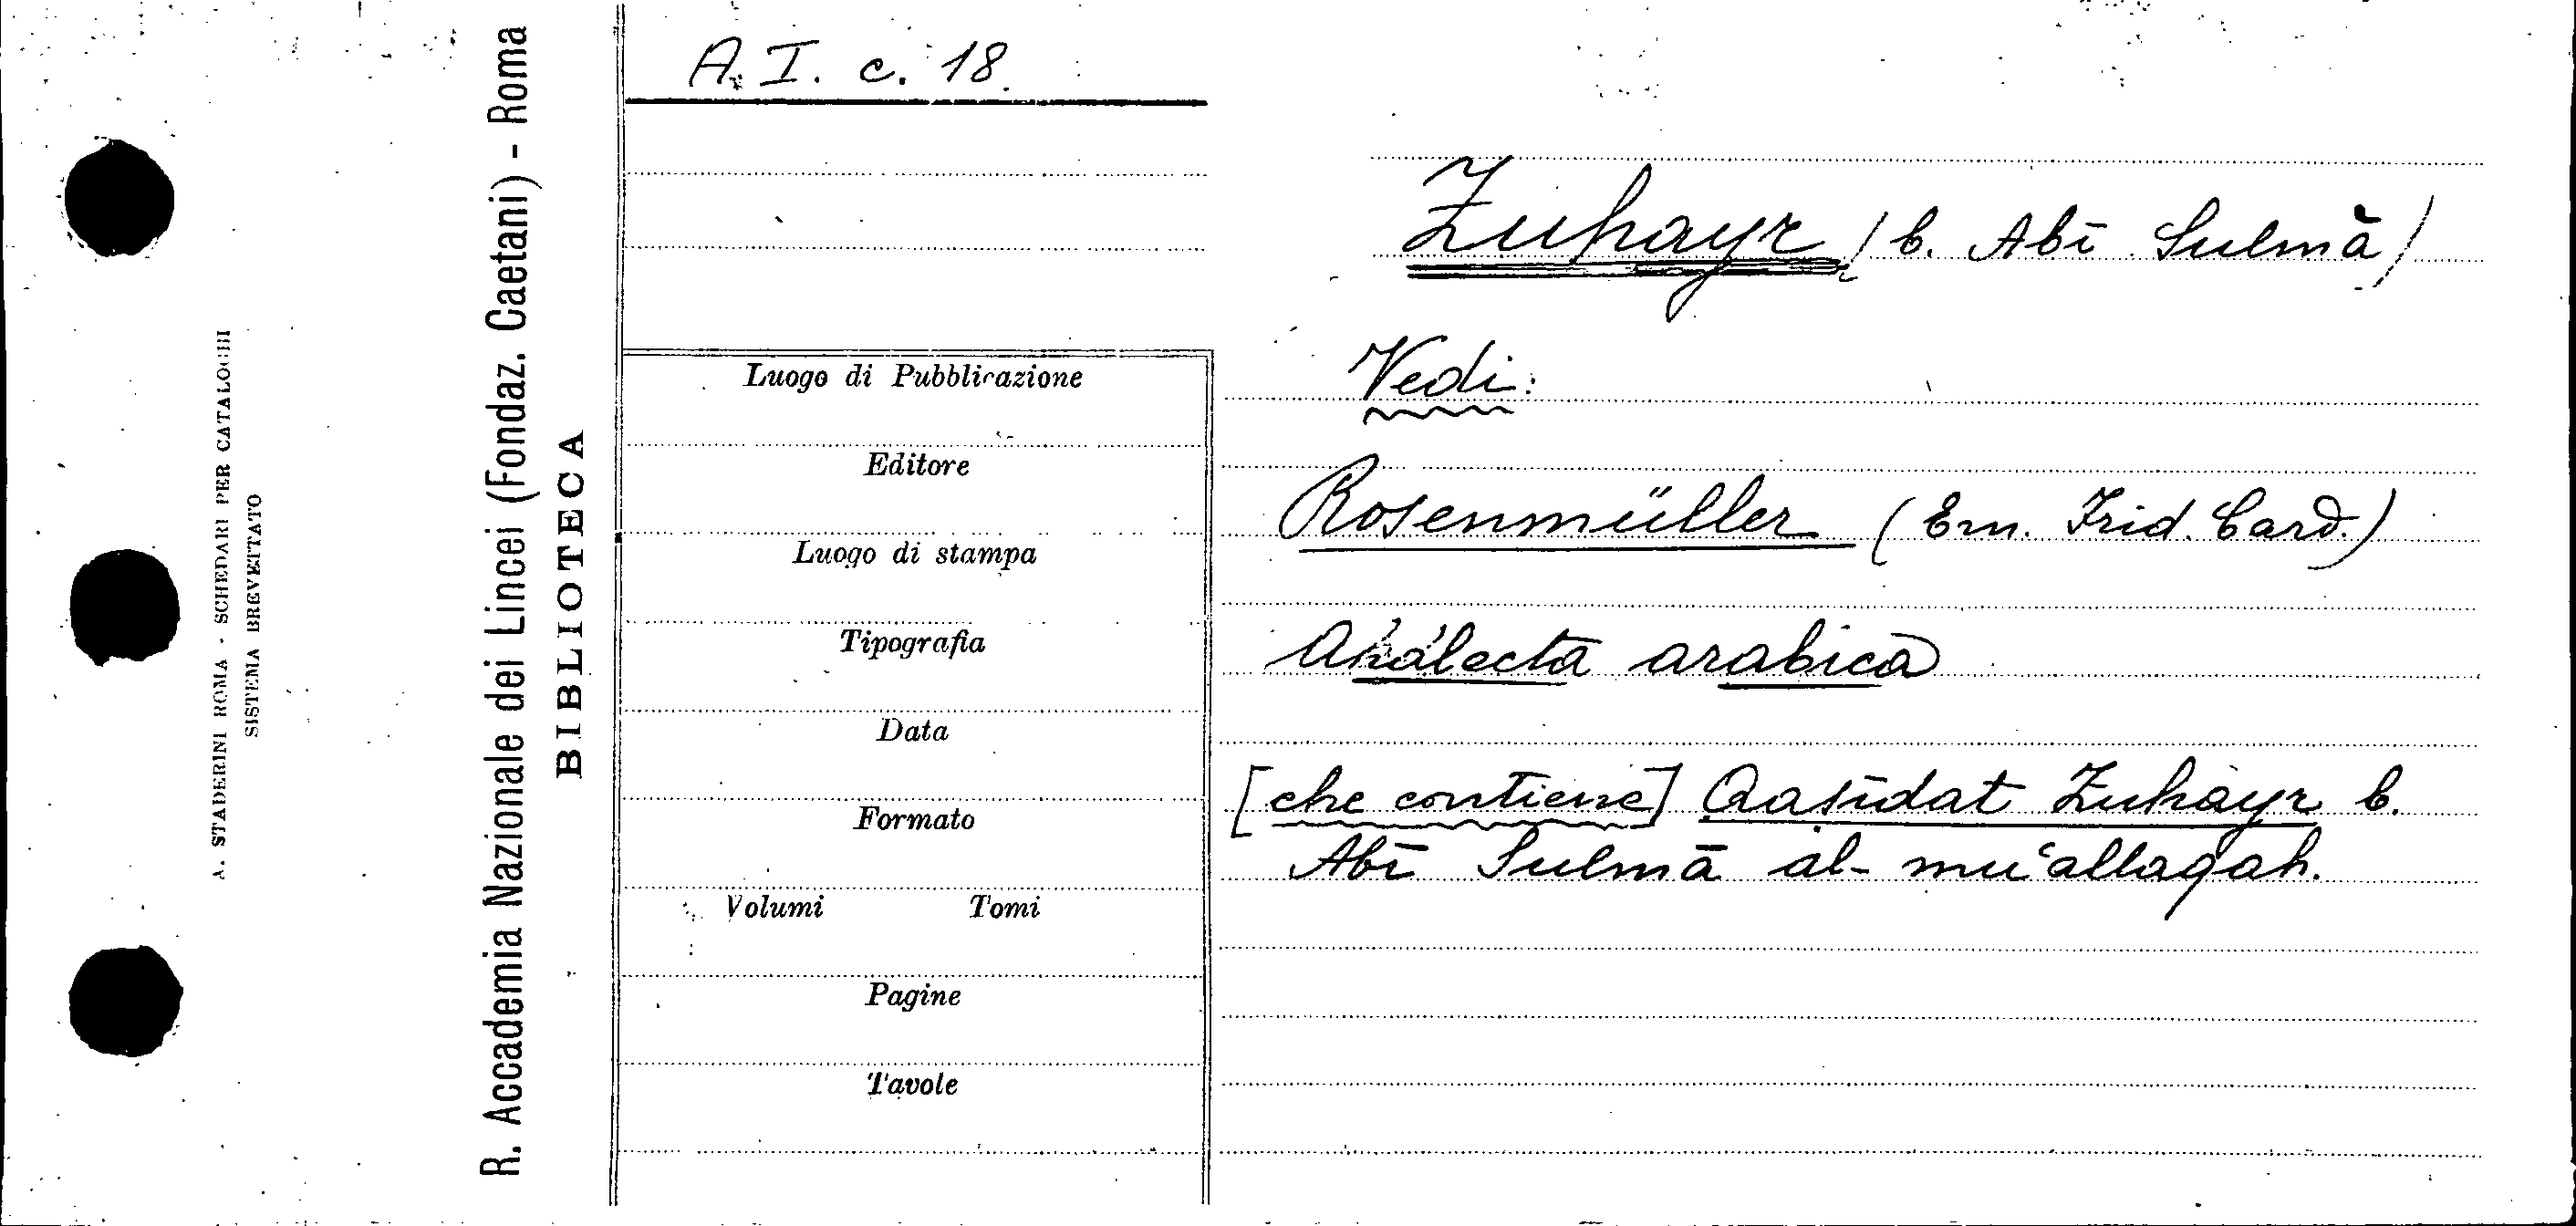 A. I. c. 18.
A. STADERINI ROMA - SCHEDARI PER CATALOGHI
SISTEMA BREVETTATO
R. Accademia Nazionale dei Lincei (Fondaz. Caetani) - Roma
BIBLIOTECA
Luogo di Pubblicazione
Editore
Luogo di stampa
Tipografia
Data
Formato
Volumi Tomi
Pagine
Tavole
Zuhayr (b. Abī Sulmā)
Vedi:
Rosenmüller (Ern. Frid. Car.)
Analecta arabica
[che contiene] Qasīdat Zuhayr b.
Abī Sulmā al-mu‘allaqah.